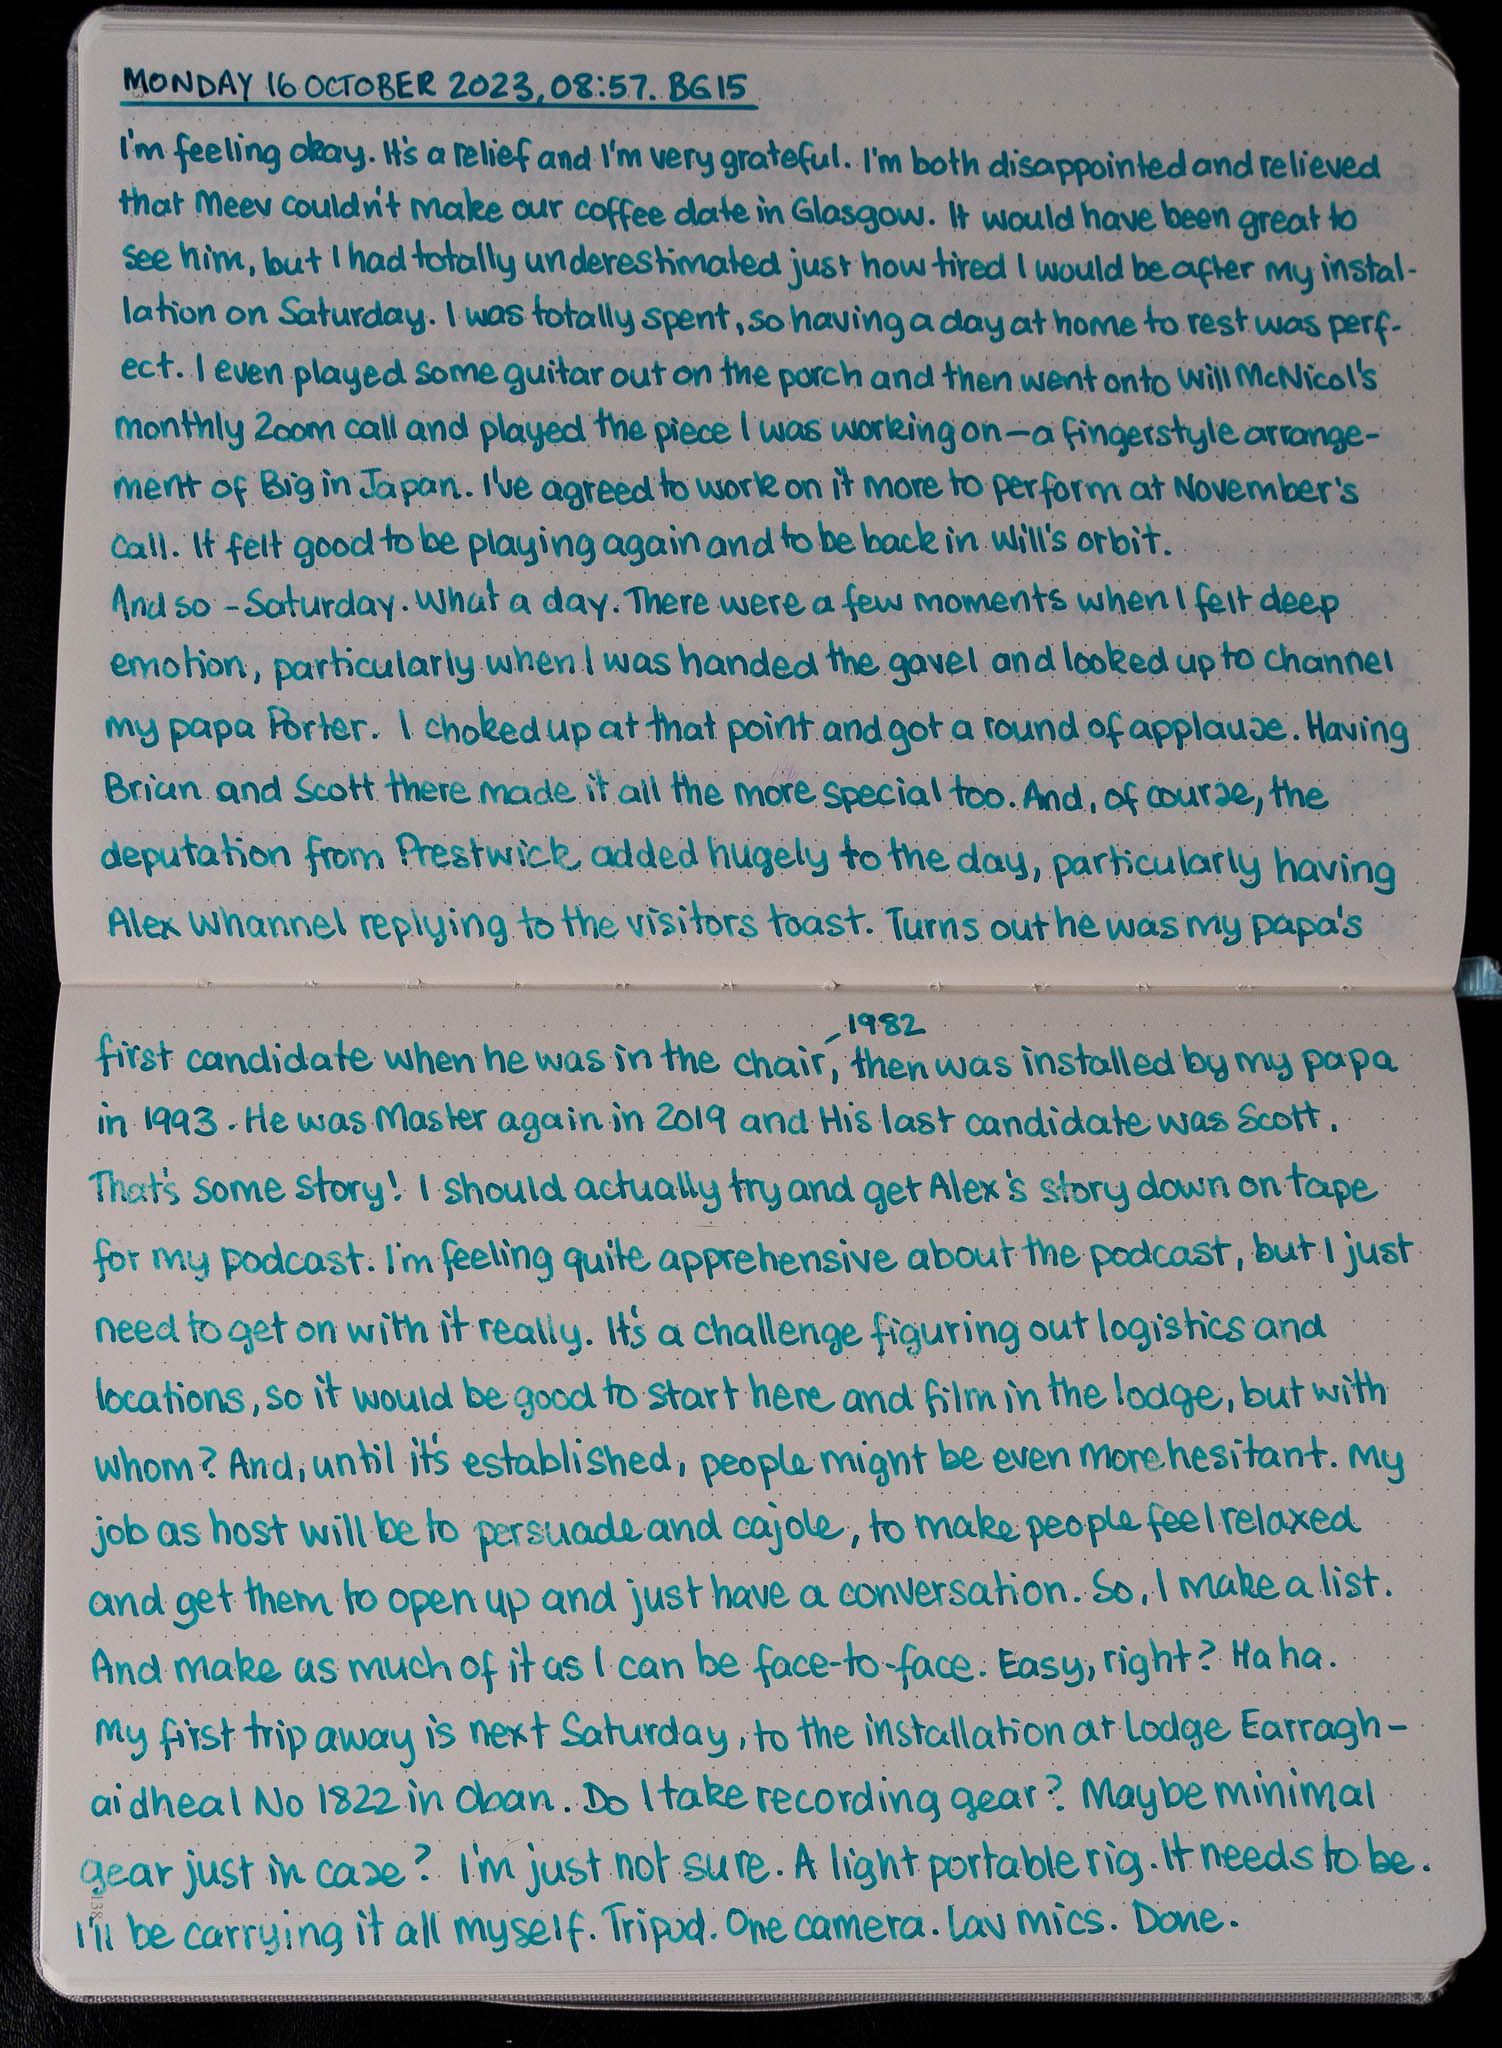 MONDAY 16 OCTOBER 2023, 08:57. BG15
I'm feeling okay. It's a relief and I'm very grateful. I'm both disappointed and relieved
that Meev couldn't make our coffee date in Glasgow. It would have been great to
see him, but I had totally underestimated just how tired I would be after my instal-
lation on Saturday. I was totally spent, so having a day at home to rest was perf-
ect. I even played some guitar out on the porch and then went onto Will McNicol's
monthly Zoom call and played the piece I was working on—a fingerstyle arrange-
ment of Big in Japan. I've agreed to work on it more to perform at November's
call. It felt good to be playing again and to be back in Will's orbit.
And so - Saturday. What a day. There were a few moments when I felt deep
emotion, particularly when I was handed the gavel and looked up to channel
my papa Porter. I choked up at that point and got a round of applause. Having
Brian and Scott there made it all the more special too. And, of course, the
deputation from Prestwick added hugely to the day, particularly having
Alex Whannel replying to the visitors toast. Turns out he was my papa's
1982
first candidate when he was in the chair, then was installed by my papa
in 1993. He was Master again in 2019 and His last candidate was Scott.
That's some story! I should actually try and get Alex's story down on tape
for my podcast. I'm feeling quite apprehensive about the podcast, but I just
need to get on with it really. It's a challenge figuring out logistics and
locations, so it would be good to start here and film in the lodge, but with
whom? And, until it's established, people might be even more hesitant. My
job as host will be to persuade and cajole, to make people feel relaxed
and get them to open up and just have a conversation. So, I make a list.
And make as much of it as I can be face-to-face. Easy, right? Ha ha.
My first trip away is next Saturday, to the installation at Lodge Earragh-
aidheal No 1822 in Oban. Do I take recording gear? Maybe minimal
gear just in case? I'm just not sure. A light portable rig. It needs to be.
I'll be carrying it all myself. Tripod. One camera. Lav mics. Done.
138